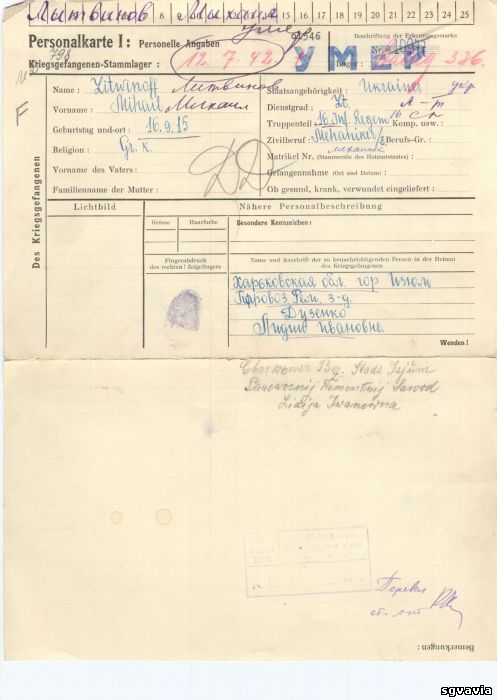 Литвинов Михаил 8 9 10 11 12 13 14 15 16 17 18 19 20 21 22 23 24 25
умер
Personalkarte I: Personelle Angaben
Beschriftung der Erkennungsmarke
УМЕР
Nr.
Kriegsgefangenen-Stammlager:
12.7.42
Lager: 336.
Des Kriegsgefangenen
Name: Litwinoff Литвинов
Vorname: Mihail Михаил
Geburtstag und-ort: 16.9.15
Religion: Gr. k.
Vorname des Vaters:
Familienname der Mutter:
Staatsangehörigkeit: Ukraina укр
Dienstgrad: Lt. Л-т
Truppenteil: 16 Inf. Regem Komp. usw.: 16 сп
Zivilberuf: Mehaniker/s Berufs-Gr.:
механик
Matrikel Nr. (Stammrolle des Heimatstaates):
Gefangennahme (Ort und Datum):
Ob gesund, krank, verwundet eingeliefert:
Lichtbild
Nähere Personalbeschreibung
Grösse
Haarfarbe
Besondere Kennzeichen:
Fingerabdruck
des rechten! Zeigefingers
Name und Anschrift der zu benachrichtigenden Person in der Heimat
des Kriegsgefangenen
Харьковская обл. гор Изюм
Парровоз Рем. з-д.
Дузенко
Лидия Ивановне.
Wenden!
Charkower Stadt Isjum
Lidija Iwanowna
Перевел
ст. л-т
Bemerkungen:
sgvavia